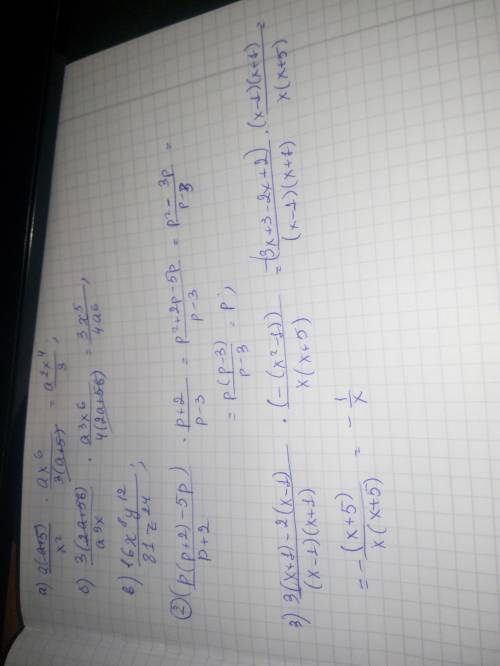 a) a(a+5)/x² · ax⁶/3(a+5) = a²x⁴/3 ;
б) 3(2a+5б)/a⁹x · a³x⁶/4(2a+5б) = 3x⁵/4a⁶ ;
в) 16x⁸y¹²/81z²⁴ ;
② (p(p+2)-5p)/p+2 · p+2/p-3 = p²+2p-5p/p-3 = p²-3p/p-3 =
= p(p-3)/p-3 = p ;
3) 3(x+1)-2(x-1)/(x-1)(x+1) · (-(x²-1))/x(x+5) = -(3x+3-2x+2)/(x-1)(x+1) · (x-1)(x+1)/x(x+5) =
= -(x+5)/x(x+5) = -1/x